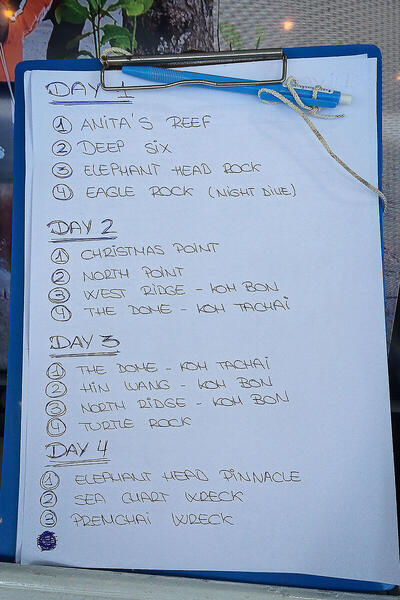 DAY 1
① ANITA'S REEF
② DEEP SIX
③ ELEPHANT HEAD ROCK
④ EAGLE ROCK (NIGHT DIVE)
DAY 2
① CHRISTMAS POINT
② NORTH POINT
③ WEST RIDGE - KOH BON
④ THE DOME - KOH TACHAI
DAY 3
① THE DOME - KOH TACHAI
② HIN WANG - KOH BON
③ NORTH RIDGE - KOH BON
④ TURTLE ROCK
DAY 4
① ELEPHANT HEAD PINNACLE
② SEA CHART WRECK
③ PREMCHAI WRECK